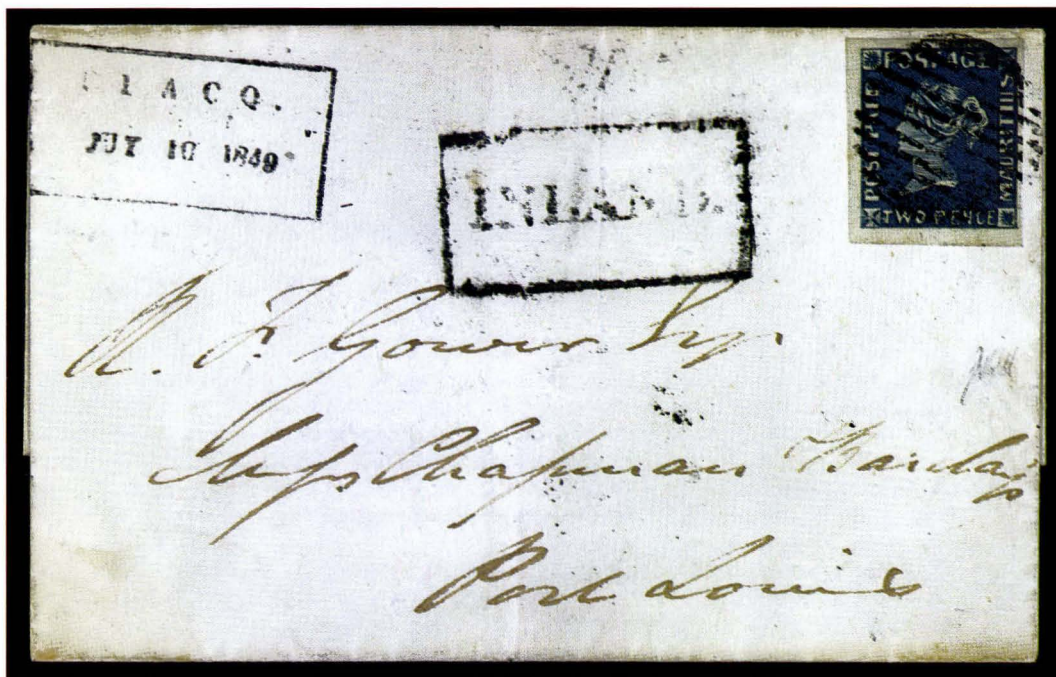 F L A C Q.
JUY 10 1849
INLAND.
POSTAGE
POST PAID
MAURITIUS
TWO PENCE
A. F. Gower Esqr
Messrs Chapman Barclay
Port Louis